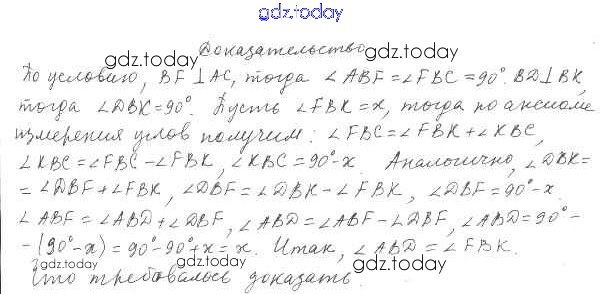 gdz.today
Доказательство
gdz.today gdz.today
По условию, BF ⊥ AC, тогда ∠ABF = ∠FBC = 90°. BD ⊥ BK,
тогда ∠DBK = 90°. Пусть ∠FBK = x, тогда по аксиоме
gdz.today
измерения углов получим: ∠FBC = ∠FBK + ∠KBC,
∠KBC = ∠FBC − ∠FBK, ∠KBC = 90° − x. Аналогично, ∠DBK =
gdz.today gdz.today
= ∠DBF + ∠FBK, ∠DBF = ∠DBK − ∠FBK, ∠DBF = 90° − x.
∠ABF = ∠ABD + ∠DBF, ∠ABD = ∠ABF − ∠DBF, ∠ABD = 90° −
gdz.today
− (90° − x) = 90° − 90° + x = x. Итак, ∠ABD = ∠FBK.
gdz.today gdz.today
Что требовалось доказать.
gdz.today